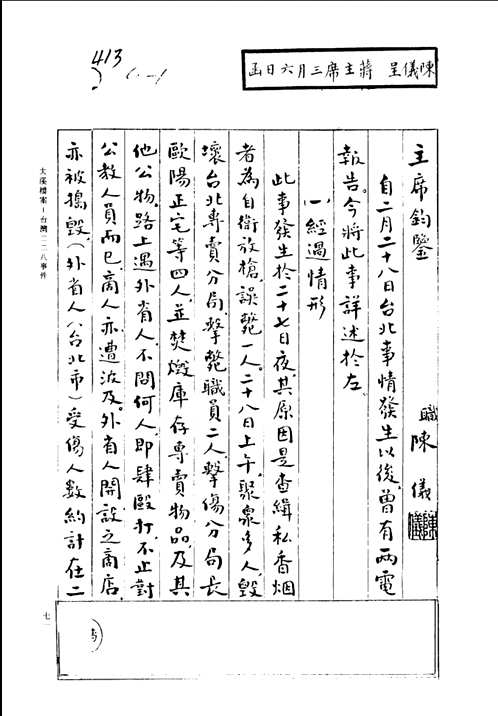 413
陳儀呈 蔣主席三月六日函
主席鈞鑒
職陳儀
自二月二十八日台北事情發生以後，曾有兩電
報告。今將此事詳述於左。
一 經過情形
此事發生於二十七日夜，其原因是查緝私香烟
者為自衛放槍，誤斃一人。二十八日上午，聚衆多人，毀
壞台北專賣分局，擊斃職員二人，擊傷分局長
歐陽正宅等四人，並焚燬庫存專賣物品，及其
他公物。路上遇外省人，不問何人，即肆毆打，不止對
公教人員而已，商人亦遭波及。外省人開設之商店，
亦被搗毀，（外省人（台北市）受傷人數約計在二
大溪檔案－台灣二二八事件
七一